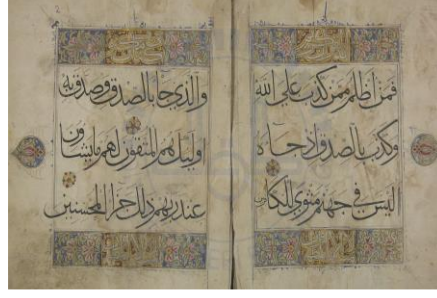 فمن اظلم ممن كذب على الله
وكذب بالصدق اذ جاءه
اليس في جهنم مثوى للكافرين
والذي جا بالصدق وصدق به
اوليك هم المتقون لهم ما يشاون
عند ربهم ذلك جزا المحسنين